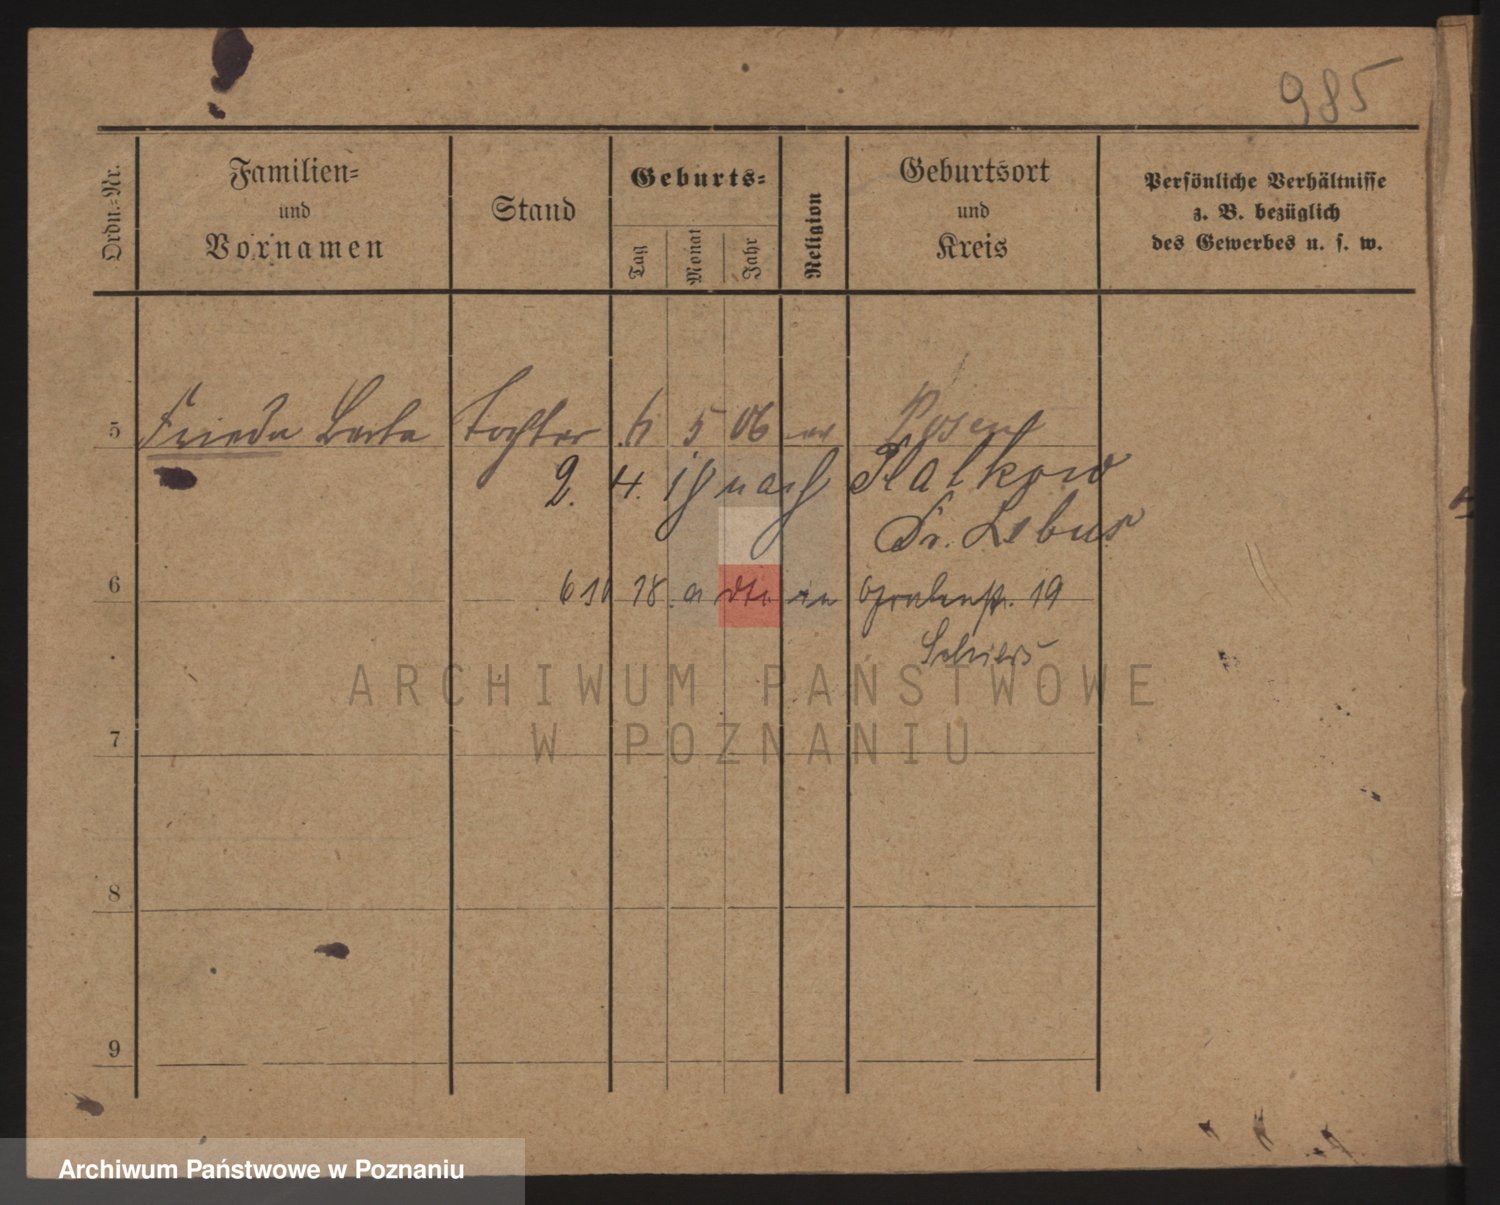 985
Ordn.-Nr.
Familien-
und
Vornamen
Stand
Geburts-
Tag
Monat
Jahr
Religion
Geburtsort
und
Kreis
Persönliche Verhältnisse
z. B. bezüglich
des Gewerbes u. s. w.
5 Frieda Berta Tochter 6 5 06 ev Posen
2. 4. 18 nach
Kr. Lebus
6 18 19
7
8
9
ARCHIWUM PAŃSTWOWE
W POZNANIU
Archiwum Państwowe w Poznaniu